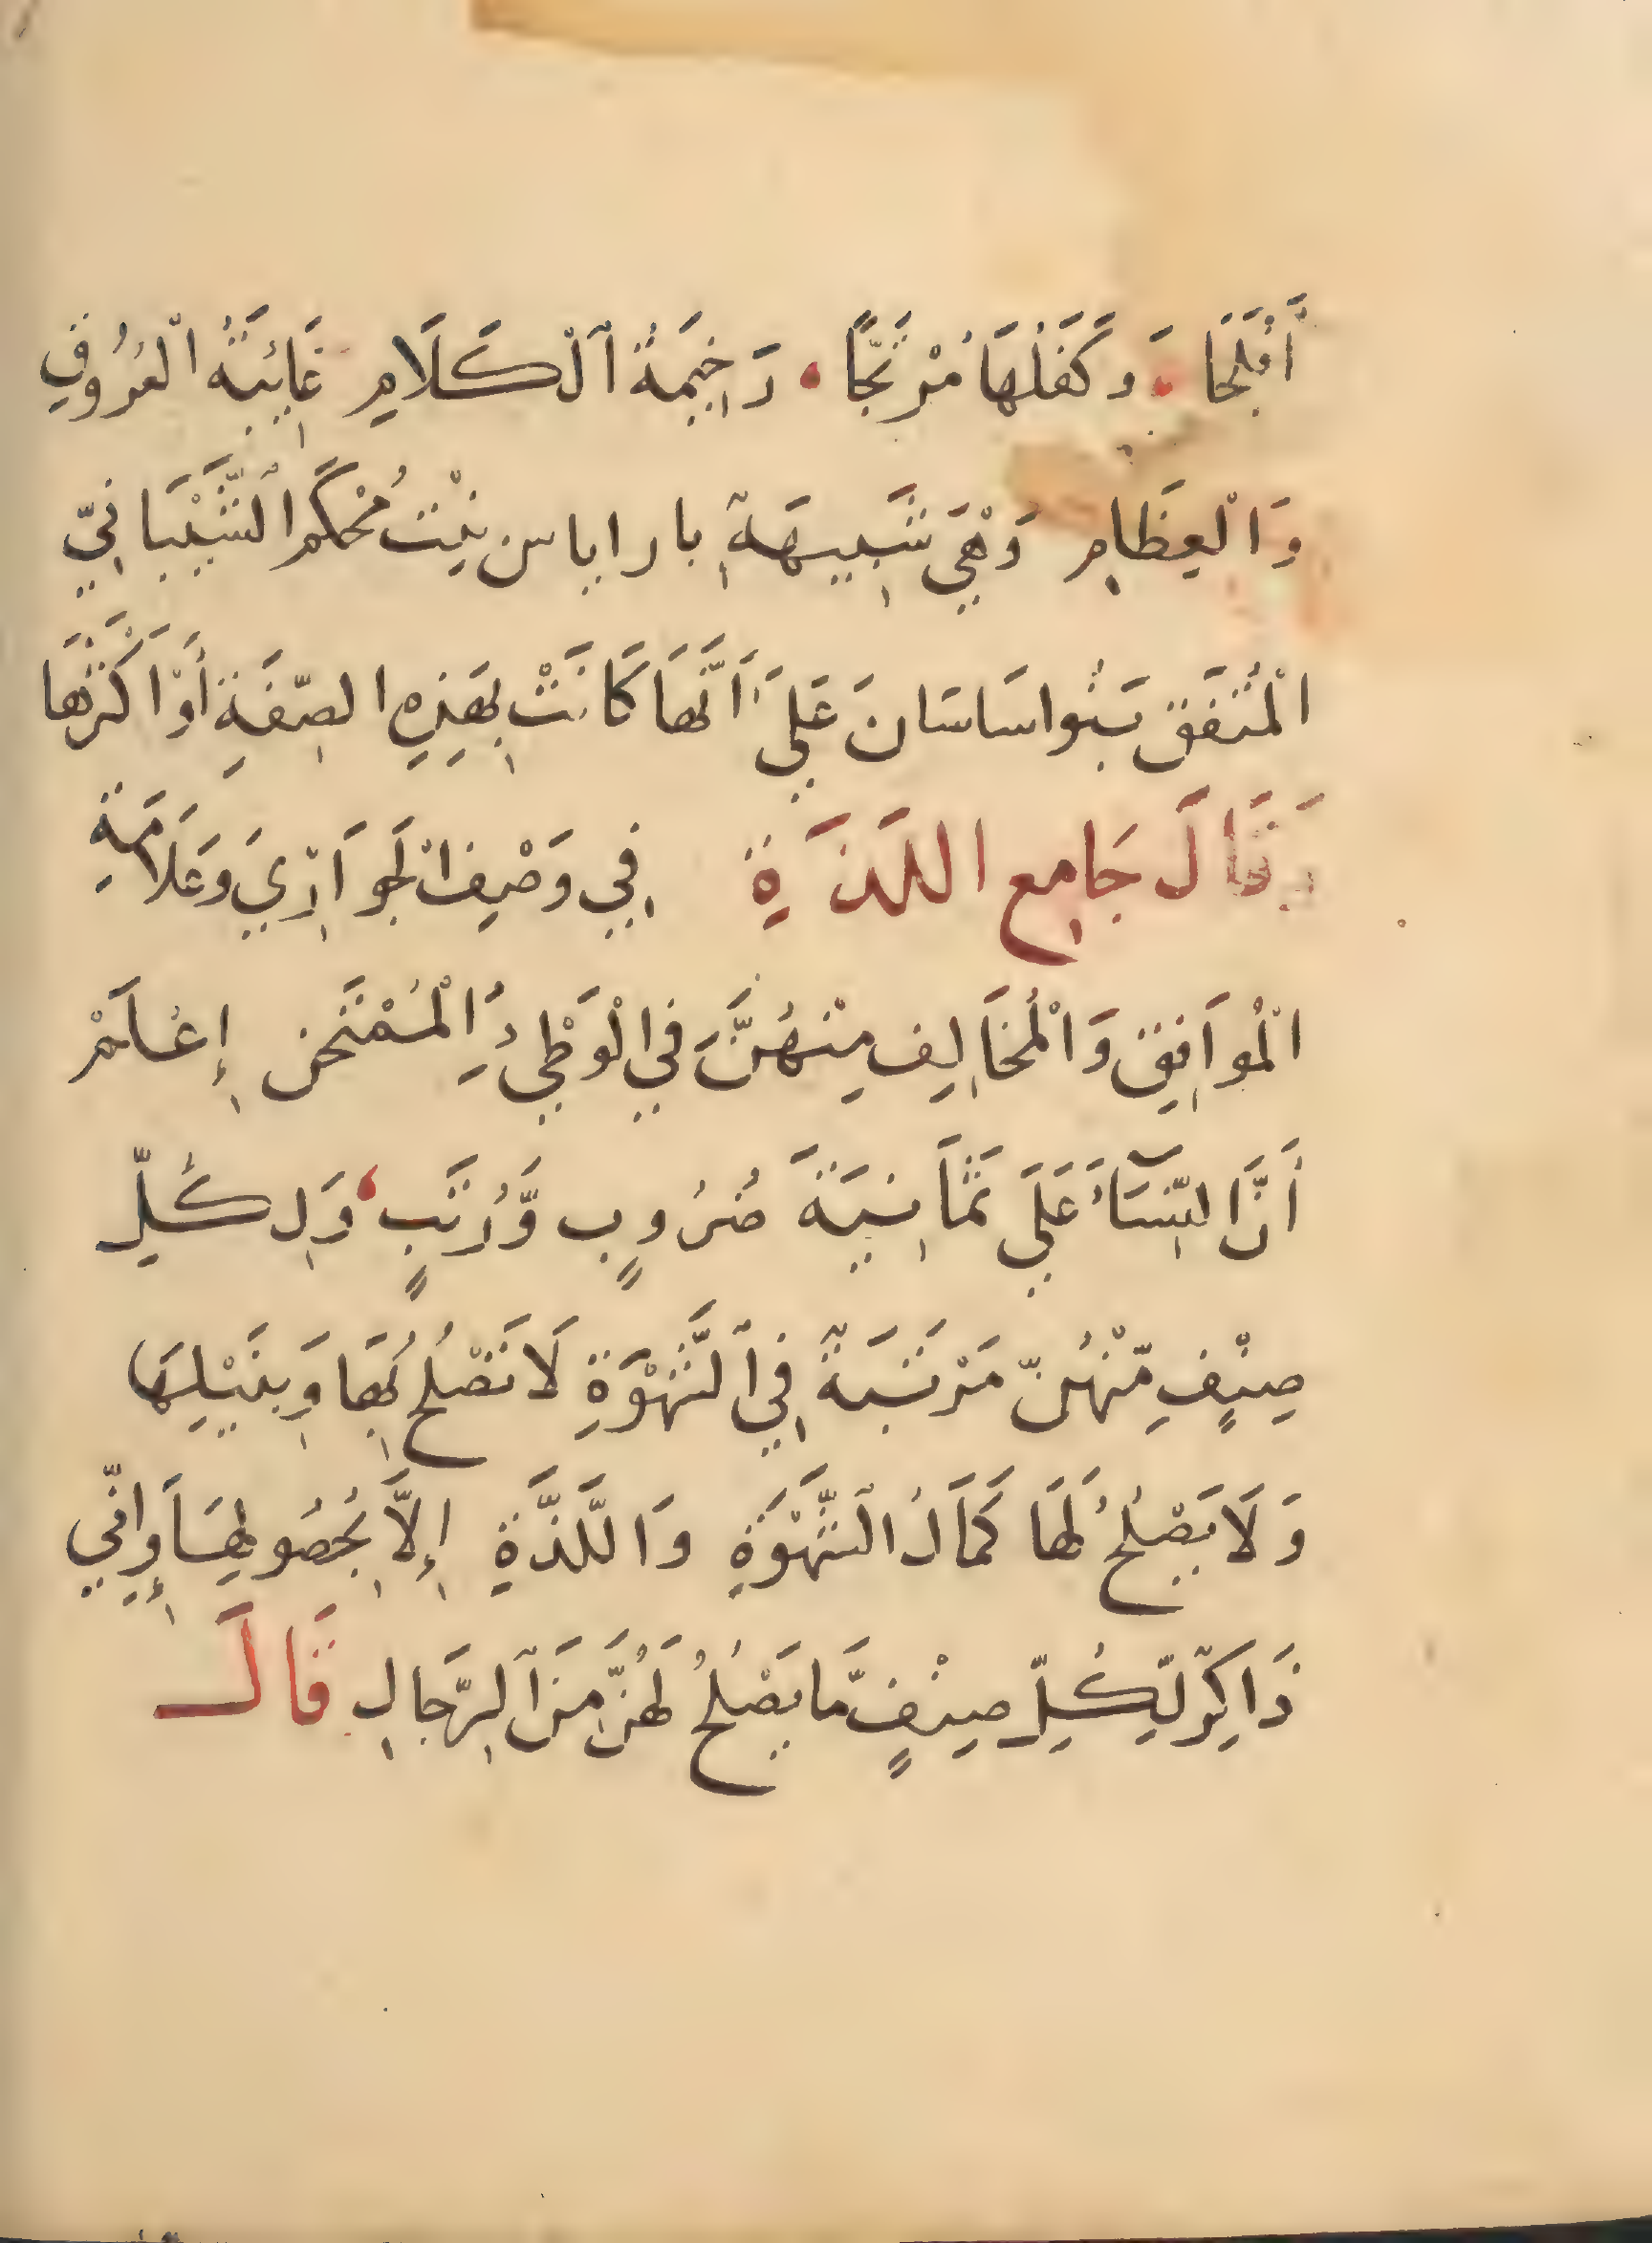 أَفْلَجًا وَكَفَلُهَا مُرْتَجًّا رَخِيمَةُ ٱلْكَلَامِ غَائِبَةُ الْعُرُوقِ
وَالْعِظَامِ وَهْيَ شَبِيهَةٌ باراباس بِنْتُ مُحْكَم الشَّيْبَانِيّ
الْمُتَفَق بَنُواسَاسَانَ عَلَى أَنَّهَا كَانَتْ بِهَذِهِ الصِّفَةِ أَوْ اَكْثَرَهَا
وَقَالَ جَامِع اللَذَةِ فِي وَصْفِ الْجَوَارِيَ وَعَلَامَةِ
الْمُوَافِق وَالْمُخَالِف مِنْهُنَّ فِي الْوَطْيءِ الْمُمْتَحَن إِعْلَمْ
أَنَّ النِّسَآءَ عَلَى ثَمَانِيَةَ ضُرُوبٍ وَّرُتَبٍ وَلِكُلِّ
صِنْفٍ مِّنْهُنّ مَرْتَبَةٌ فِي ٱلشَّهْوَةِ لَا تَصْلُحُ بِهَا وَبِنَيْلِهَا
وَلَا يَصْلُحُ لَهَا كَمَالُ الشَّهْوَةِ وَاللَّذَّةِ إِلَّا بِحُصُولِهَا وَإِنِّي
ذَاكِرٌ لِّكُلِّ صِنْفٍ مَّا يَصْلُحُ لَهُنَّ مِنَ ٱلرِّجَالِ قَالَ